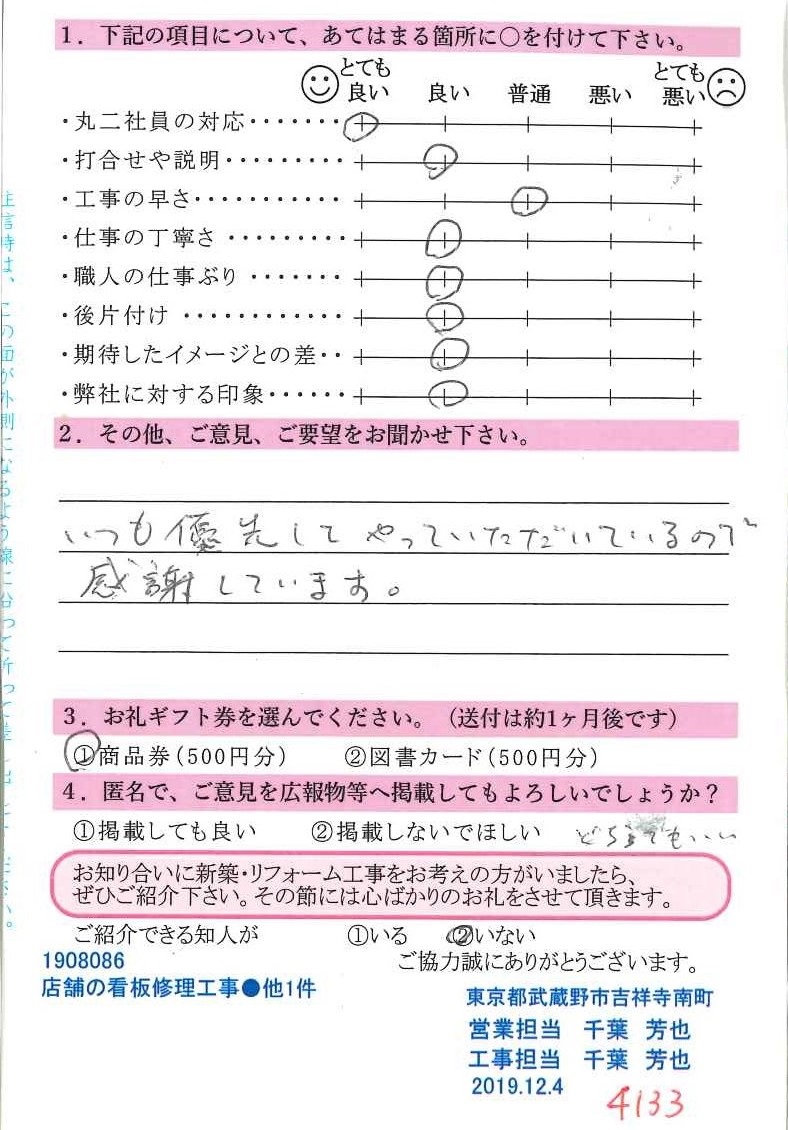 1. 下記の項目について、あてはまる箇所に○を付けて下さい。
とても良い 良い 普通 悪い とても悪い
・丸二社員の対応・・・・・・・
・打合せや説明・・・・・・・・・
・工事の早さ・・・・・・・・・・・
・仕事の丁寧さ・・・・・・・・・
・職人の仕事ぶり・・・・・・・
・後片付け・・・・・・・・・・・・
・期待したイメージとの差・・
・弊社に対する印象・・・・・・
2. その他、ご意見、ご要望をお聞かせ下さい。
いつも優先してやっていただいているので
感謝しています。
3. お礼ギフト券を選んでください。（送付は約1ヶ月後です）
①商品券(500円分) ②図書カード(500円分)
4. 匿名で、ご意見を広報物等へ掲載してもよろしいでしょうか？
①掲載しても良い ②掲載しないでほしい どちらでもいい
お知り合いに新築・リフォーム工事をお考えの方がいましたら、
ぜひご紹介下さい。その節には心ばかりのお礼をさせて頂きます。
ご紹介できる知人が ①いる ②いない
ご協力誠にありがとうございます。
1908086
店舗の看板修理工事●他1件
東京都武蔵野市吉祥寺南町
営業担当 千葉 芳也
工事担当 千葉 芳也
2019.12.4
4133